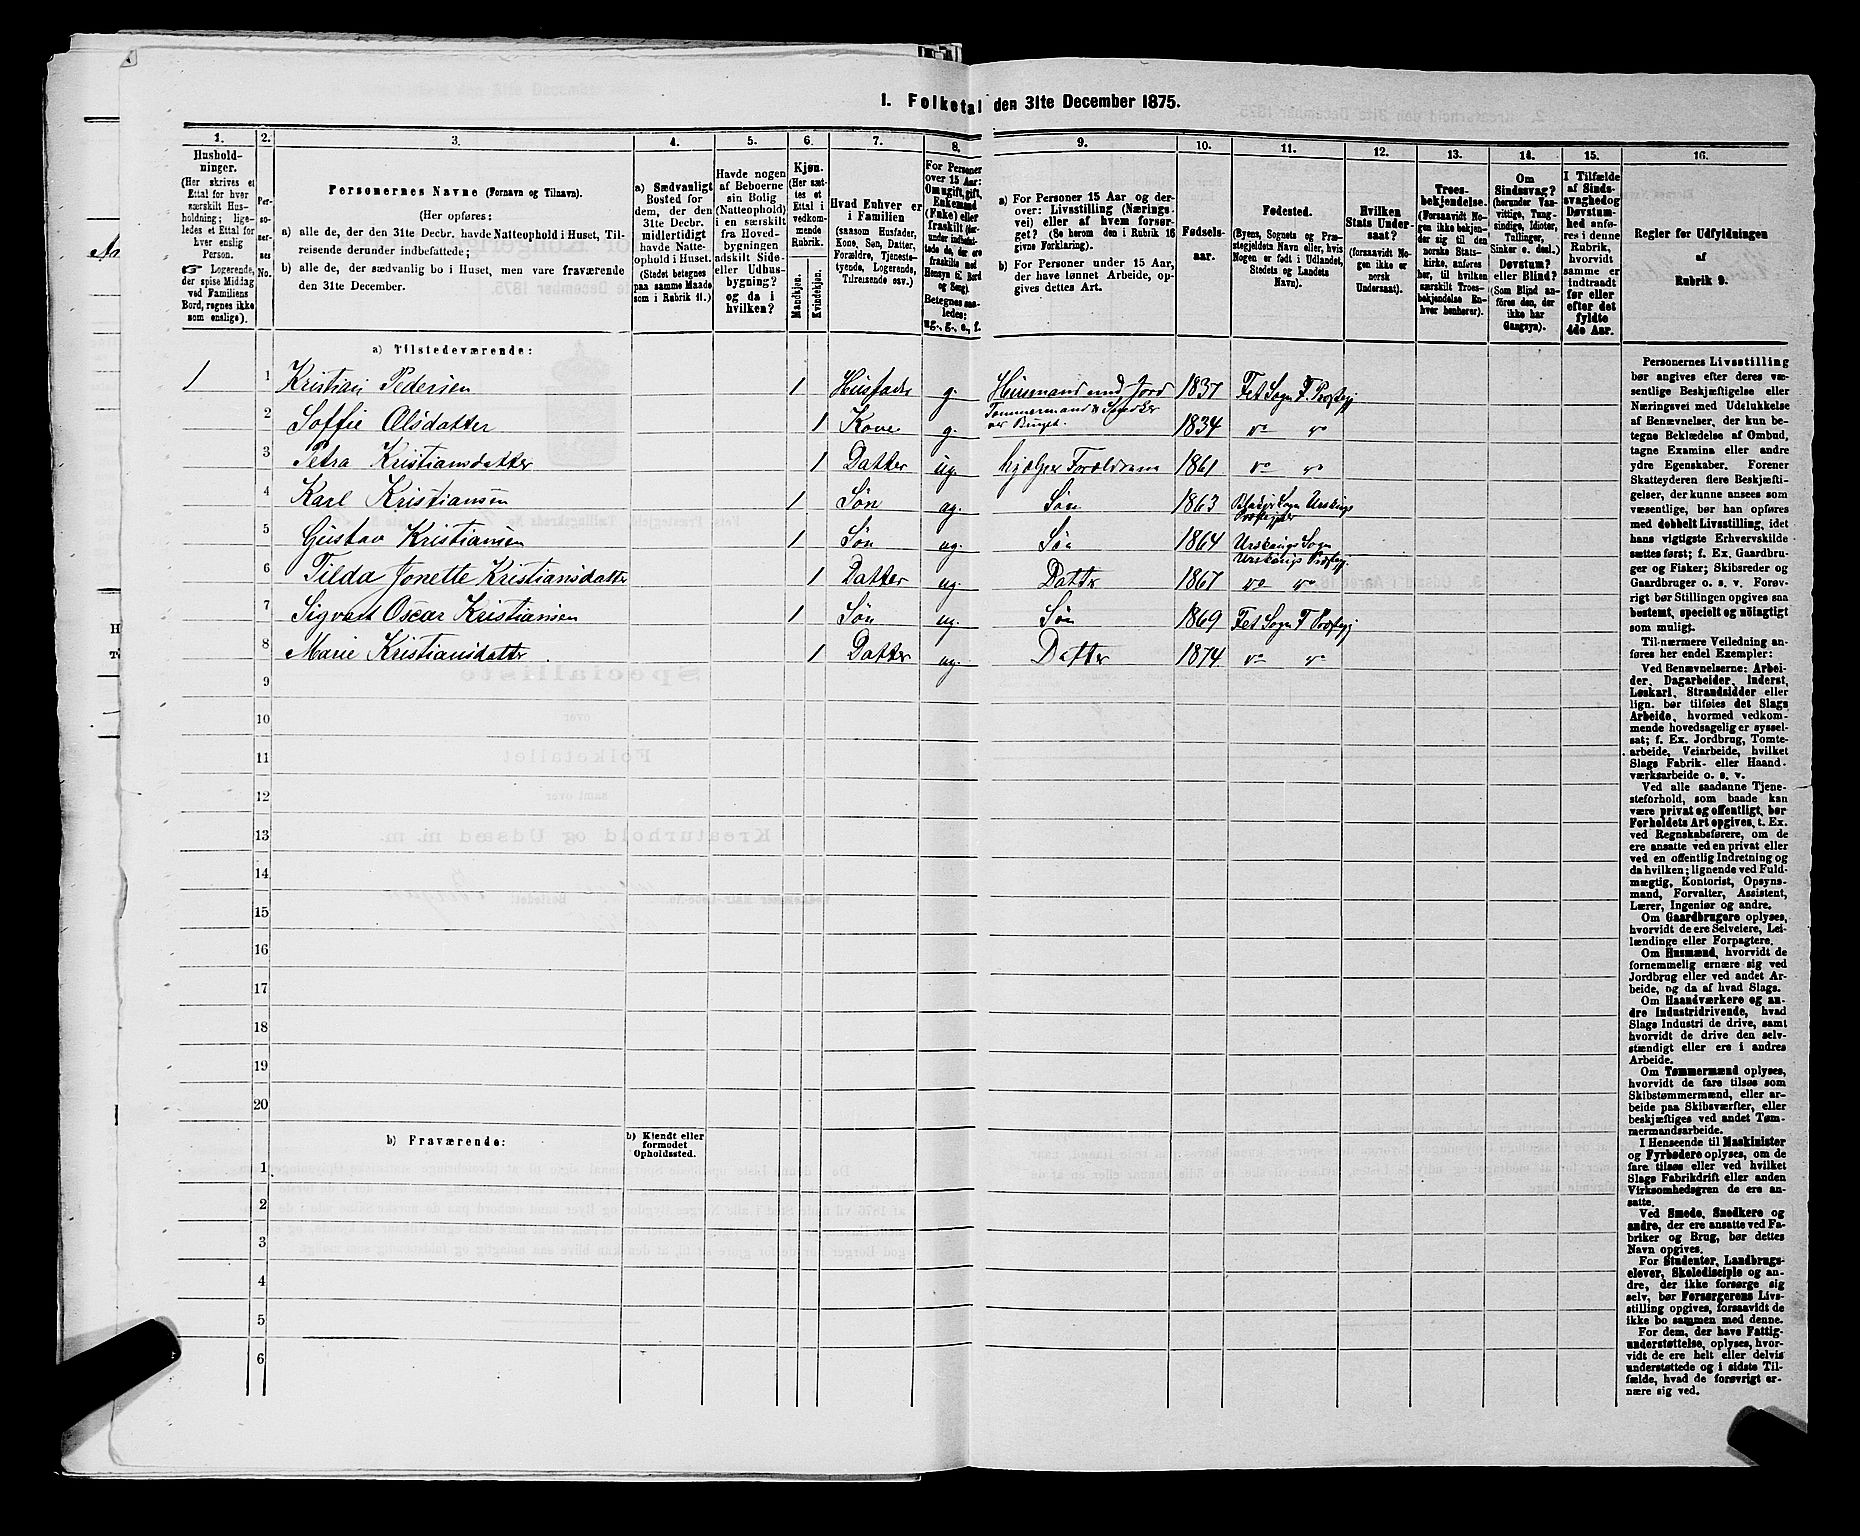 1. Folketal den 31te December 1875.
1. 2. 3. 4. 5. 6. 7. 8. 9. 10. 11. 12. 13. 14. 15. 16.
Hushold-
ninger.
(Her skrives et
Ettal for hver
særskilt Hus-
holdning; lige-
ledes et Ettal for
hver enslig
Person.
☞ Logerende,
der spise Middag
ved Familiens
Bord, regnes ikke
som enslige).
Per-
so-
ner-
nes
No.
Personernes Navne (Fornavn og Tilnavn).
(Her opføres:
a) alle de, der den 31te Decbr. havde Natteophold i Huset, Til-
reisende derunder indbefattede;
b) alle de, der sædvanlig bo i Huset, men vare fraværende
den 31te December.
a) Sædvanligt
Bosted for
dem, der den
31te Decbr.
midlertidigt
havde Natte-
ophold i Huset.
(Stedet betegnes
paa samme Maade
som i Rubrik 11.)
Havde nogen
af Beboerne
sin Bolig
(Natteophold)
i en særskilt
fra Hoved-
bygningen
adskilt Side-
eller Udhus-
bygning?
og da i
hvilken?
Kjøn.
(Her sæt-
tes et
Ettal i
vedkom-
mende
Rubrik.
Mandkjøn.
Kvindekjøn.
Hvad Enhver er
i Familien
(saasom Husfader,
Kone, Søn, Datter,
Forældre, Tjeneste-
tyende, Logerende,
Tilreisende osv.)
For Personer
over 15 Aar:
Om ugift, gift,
Enkemand
(Enke) eller
fraskilt (der-
under indbefat-
tede de, der ere
fraskilte med
Hensyn til Bord
og Seng).
Betegnes saa-
ledes:
ug., g., e., f.
a) For Personer 15 Aar og der-
over: Livsstilling (Nærings-
vei) eller af hvem forsør-
get? (Se herom den i Rubrik 16
givne Forklaring).
b) For Personer under 15 Aar,
der have lønnet Arbeide, op-
gives dettes Art.
Fødsels-
aar.
Fødested.
(Byens, Sognets og Præ-
stegjeldets Navn eller, hvis
Nogen er født i Udlandet,
Stedets og Landets
Navn).
Hvilken
Stats Under-
saat?
(forsaavidt No-
gen ikke er
norsk
Undersaat).
Troes-
bekjendelse.
(Forsaavidt No-
gen ikke bekjen-
der sig til den
norske Stats-
kirke, anføres
her, til hvilken
særskilt Troes-
bekjendelse En-
hver henhører).
Om
Sindssvag?
(herunder Van-
vittige, Tung-
sindige, Idioter,
Tullinger,
Sinker o. desl.)
Døvstum?
eller Blind?
(Som Blind an-
føres den, der
ikke har
Gangsyn).
I Tilfælde
af Sinds-
svaghed og
Døvstum-
hed anfø-
res i denne
Rubrik,
hvorvidt
samme er
indtraadt
før eller
efter det
fyldte
4de Aar.
Regler for Udfyldningen
af
Rubrik 9.
a) Tilstedeværende:
1 1 Kristian Pedersen 1 Husfader g. Husmand med Jord 1837 Fet Sogn F Præstegj
Tømmermand & Snedker
2 Soffie Olsdatter 1 Kone g. 1834 do do
3 Petra Kristiansdatter 1 Datter ug. hjælper Forældrene 1861 do do
4 Karl Kristiansen 1 Søn ug. Søn 1863 Sogn Urskogs
5 Gustav Kristiansen 1 Søn ug. Søn 1864 Urskougs Sogn
Urskougs Præstegj
6 Tilda Jonette Kristiansdatter 1 Datter ug. Datter 1867 do do
7 Sigvart Oscar Kristiansen 1 Søn ug. Søn 1869 Fet Sogn F Præstegj
8 Marie Kristiansdatter 1 Datter ug. Datter 1874 do do
9
10
11
12
13
14
15
16
17
18
19
20
b) Fraværende:
b) Kjendt eller
formodet
Opholdssted.
1
2
3
4
5
6
Personernes Livsstilling
bør angives efter deres væ-
sentlige Beskjæftigelse eller
Næringsvei med Udelukkelse
af Benævnelser, der kun be-
tegne Beklædelse af Ombud,
tagne Examina eller andre
ydre Egenskaber. Forener
Skatteyderen flere Beskjæfti-
gelser, der kunne ansees som
væsentlige, bør han opføres
med dobbelt Livsstilling, idet
hans vigtigste Erhvervskilde
sættes først; f. Ex. Gaardbru-
ger og Fisker; Skibsreder og
Gaardbruger o. s. v. Forøv-
rigt bør Stillingen opgives saa
bestemt, specielt og nöiagtigt
som muligt.
Til nærmere Veiledning an-
føres her endel Exempler:
Ved Benævnelserne: Arbei-
der, Dagarbeider, Inderst,
Løskarl, Strandsidder eller
lign. bør tilføies det Slags
Arbeide, hvormed vedkom-
mende hovedsagelig er syssel-
sat; f. Ex. Jordbrug, Tomte-
arbeide, Veiarbeide, hvilket
Slags Fabrik- eller Haand-
værksarbeide o. s. v.
Ved alle saadanne Tjene-
steforhold, som baade kan
være privat og offentligt, bør
Forholdets Art opgives, t. Ex.
ved Regnskabsførere, om de
ere ansatte ved en privat eller
ved en offentlig Indretning og
da hvilken; lignende ved Fuld-
mægtig, Kontorist, Opsyns-
mand, Forvalter, Assistent,
Lærer, Ingeniør og andre.
Om Gaardbrugere oplyses,
hvorvidt de ere Selveiere, Lei-
lændinge eller Forpagtere.
Om Husmænd, hvorvidt de
fornemmelig ernære sig ved
Jordbrug eller ved andet Ar-
beide, og da af hvad Slags.
Om Haandværkere og an-
dre Industridrivende, hvad
Slags Industri de drive, samt
hvorvidt de drive den selv-
stændigt eller ere i andres
Arbeide.
Om Tømmermænd oplyses,
hvorvidt de fare tilsøs som
Skibstømmermænd, eller ar-
beide paa Skibsværfter, eller
beskjæftiges ved andet Tøm-
mermandsarbeide.
I Henseende til Maskinister
og Fyrbødere oplyses, om de
fare tilsøs eller ved hvilket
Slags Fabrikdrift eller anden
Virksomhedsgren de ere an-
satte.
Ved Smede, Snedkere og
andre, der ere ansatte ved Fa-
briker og Brug, bør dettes
Navn opgives.
For Studenter, Landbrugs-
elever, Skoledisciple og an-
dre, der ikke forsørge sig
selv, bør Forsørgerens Livs-
stilling opgives, forsaavidt de
ikke bo sammen med denne.
For dem, der have Fattig-
understøttelse, oplyses, hvor-
vidt de ere helt eller delvis
understøttede og i sidste Til-
fælde, hvad de forøvrigt er-
nære sig ved.